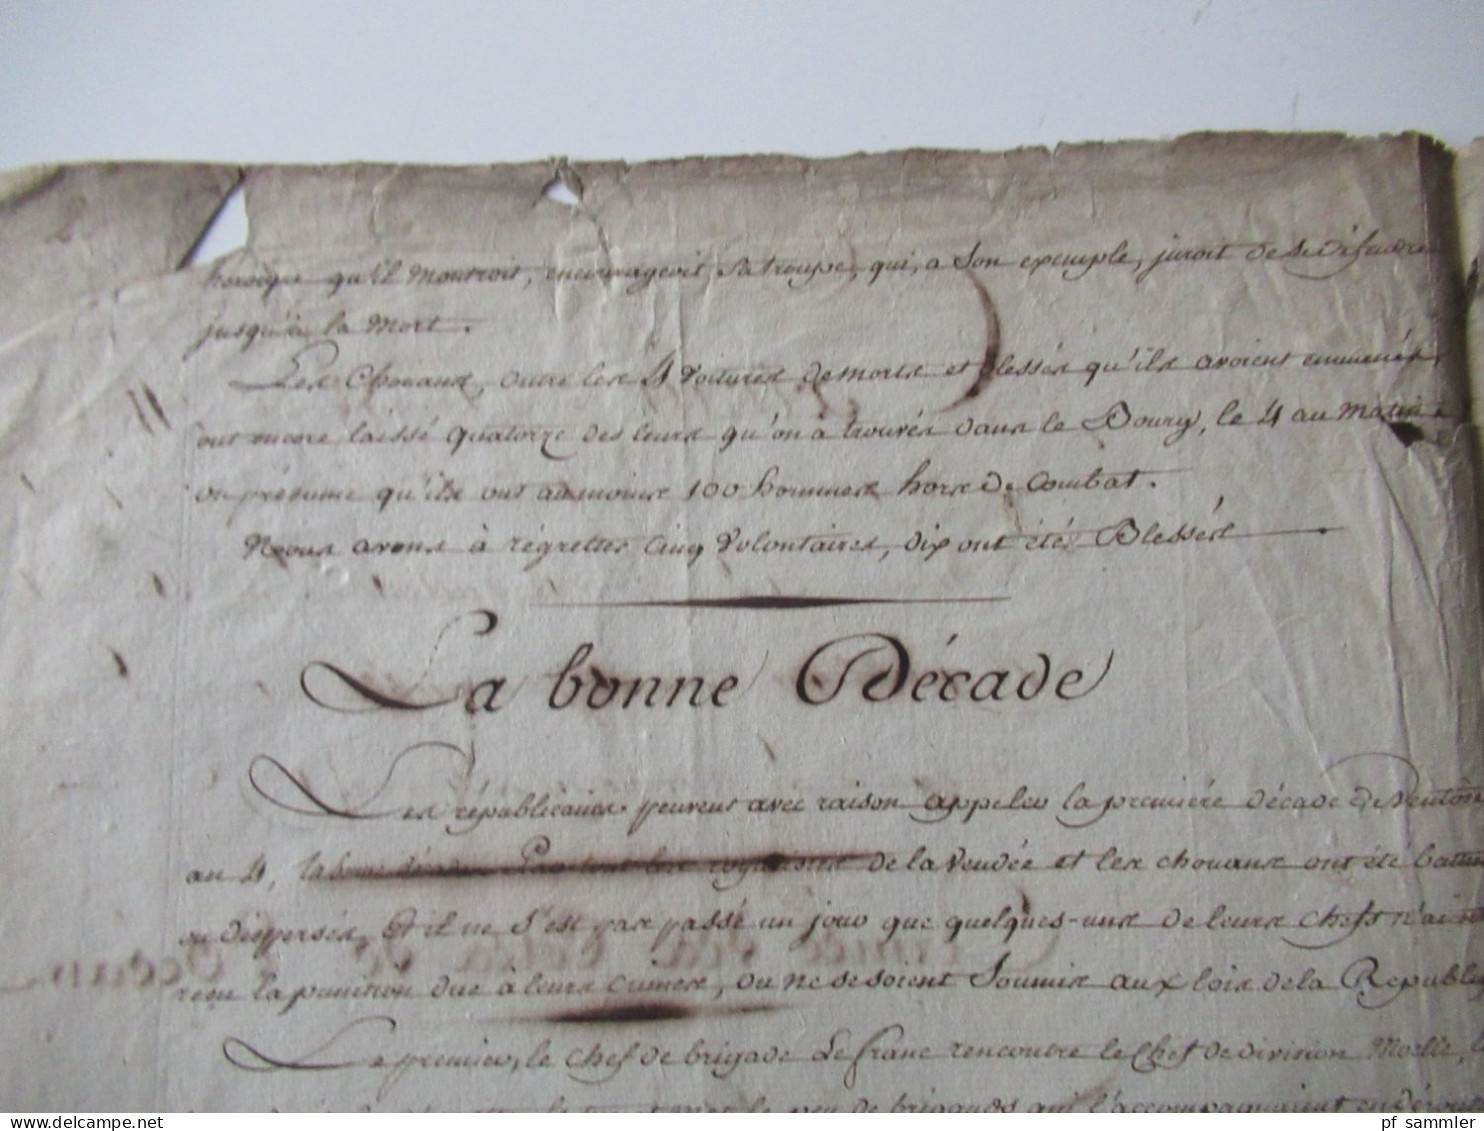 héroïque qu'il montroit, encourageoit sa troupe, qui, a son exemple, juroit de se défendre
jusqu'à la Mort.
Les Chouans, outre les 4 voitures de morts et blessés qu'ils avoient emmenés,
ont encore laissé quatorze des leurs qu'on à trouvés dans le Bourg, le 4 au Matin
on présume qu'ils ont au moins 100 hommes hors de Combat.
Nous avons à régretter Cinq Volontaires, dix ont été Blessés
La bonne Décade
Les républicains peuvent avec raison appeler la première décade de Ventôse
an 4, la bonne décade Partout les royalistes de la Vendée et les chouans ont été battus
ou dispersés, Et il ne s'est pas passé un jour que quelques-uns de leurs Chefs n'aient
reçu la punition due à leurs crimes, ou ne se soient Soumis aux lois de la Républi
Le premier, le chef de brigade Le franc rencontre le Chef de division
de brigands qui l'accompagnaient en dérou
pf_sammler
www.delcampe.net